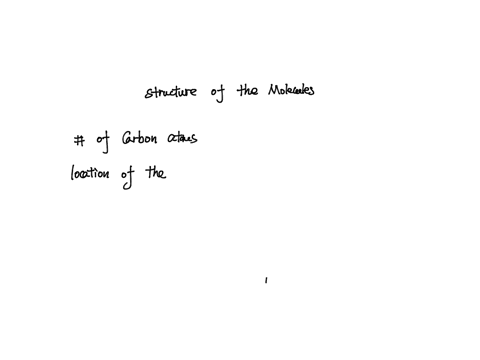 structure of the Molecules
# of Carbon atoms
location of the